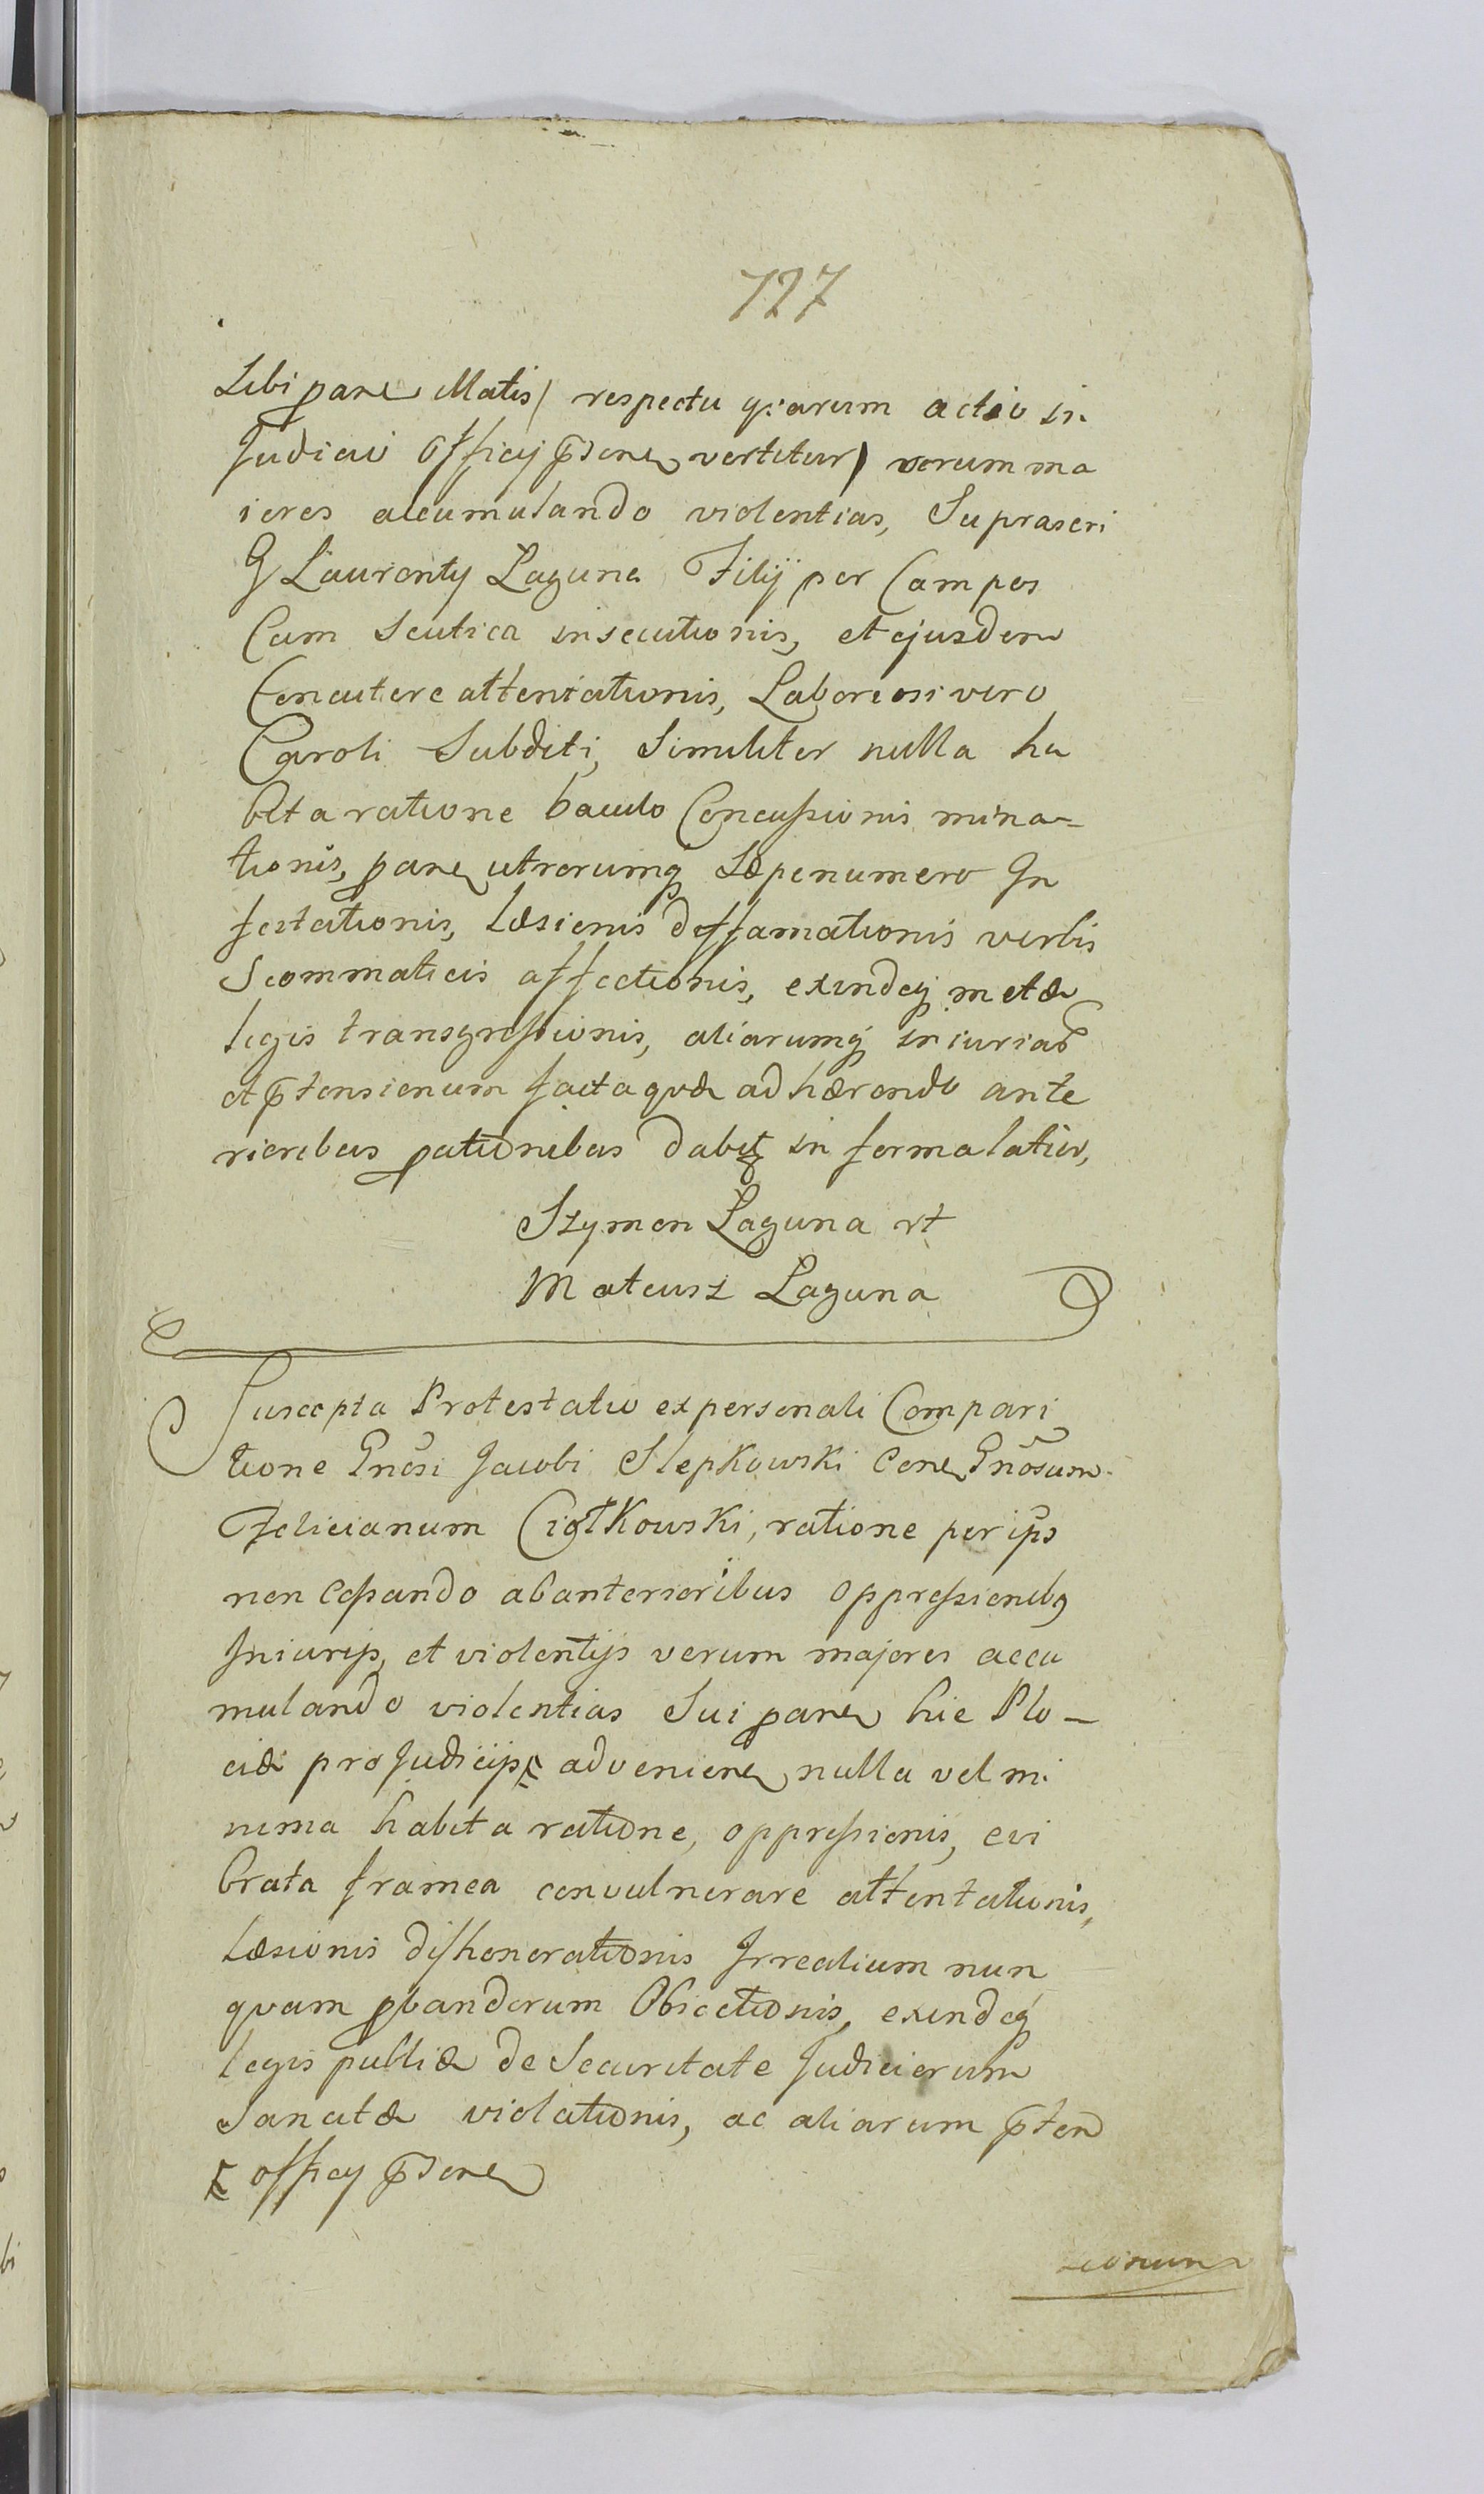 727
Sibi paru Illatis / respectu qrarum actio in
Judicio Officij p̃senti vertitur) verum ma
iores accumulando violentias, Suprascri
G Laurenty Laguna Filij per Campos
Cum Scutica insecutionis, et ejusdem
Concutere attentationis, Laboriosi vero
Caroli Subditi, Similiter nulla ha
bita ratione baculo Concussionis mina=
tionis, parti utrorumq Sæpenumero In
festationis, læsionis deffamationis verbis
Scommaticis affectionis, exindeq metæ
legis transgressionis, aliarumq iniuriarũ
et p̃tensionum facta quæ adhærendo ante
rioribus p̱ationibus dabit in forma latior,
Szymon Laguna et
Mateusz Laguna
Suscepta Protestatio ex personali Compari
tione Gnõsi Jacobi Slepkowski Contra Gnõsum
Felicianum Ciołkowski, ratione per ips̃
non Cessando ab anterioribus oppressionib9
Iniurijs, et violentijs verum majores accu
mulando violentias Sui parte hic Plo_
ciæ pro Judicijs adveniene nulla vel mi
nima habita ratione, oppressionis, evi
brata framea convulnerare attentationis,
læsionis dishonorationis Irrealium nun
quam p̱bandorum Obiectionis, exindeq
legis publicæ de Securitate Judiciorum
Sancitæ violationis, ac aliarum p̃ten
officij p̃senti
sionum